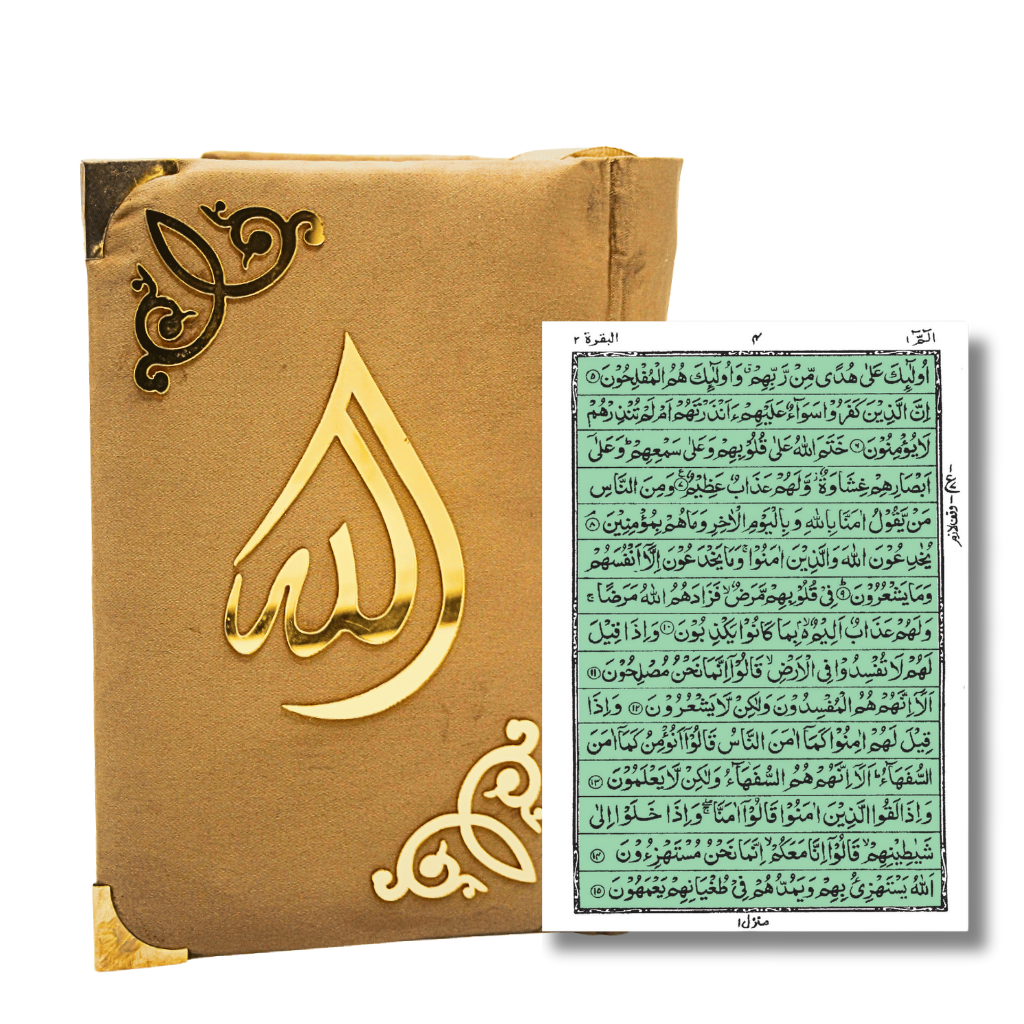 الله
الٓمّٓ ١
٤
البقرة ٢
اُولٰٓئِكَ عَلٰى هُدًى مِّنْ رَّبِّهِمْ ۙ وَاُولٰٓئِكَ هُمُ الْمُفْلِحُوْنَ ٥
اِنَّ الَّذِيْنَ كَفَرُوْا سَوَآءٌ عَلَيْهِمْ ءَاَنْذَرْتَهُمْ اَمْ لَمْ تُنْذِرْهُمْ
لَا يُؤْمِنُوْنَ ٦ خَتَمَ اللّٰهُ عَلٰى قُلُوْبِهِمْ وَعَلٰى سَمْعِهِمْ ؕ وَعَلٰٓى
اَبْصَارِهِمْ غِشَاوَةٌ ۫ وَّلَهُمْ عَذَابٌ عَظِيْمٌ ٧ وَمِنَ النَّاسِ
مَنْ يَّقُوْلُ اٰمَنَّا بِاللّٰهِ وَبِالْيَوْمِ الْاٰخِرِ وَمَا هُمْ بِمُؤْمِنِيْنَ ٨
يُخٰدِعُوْنَ اللّٰهَ وَالَّذِيْنَ اٰمَنُوْا ۚ وَمَا يَخْدَعُوْنَ اِلَّآ اَنْفُسَهُمْ
وَمَا يَشْعُرُوْنَ ٩ فِيْ قُلُوْبِهِمْ مَّرَضٌ ۙ فَزَادَهُمُ اللّٰهُ مَرَضًا ۚ
وَلَهُمْ عَذَابٌ اَلِيْمٌۢ ۙ بِمَا كَانُوْا يَكْذِبُوْنَ ١٠ وَاِذَا قِيْلَ
لَهُمْ لَا تُفْسِدُوْا فِى الْاَرْضِ ۙ قَالُوْٓا اِنَّمَا نَحْنُ مُصْلِحُوْنَ ١١
اَلَآ اِنَّهُمْ هُمُ الْمُفْسِدُوْنَ وَلٰكِنْ لَّا يَشْعُرُوْنَ ١٢ وَاِذَا
قِيْلَ لَهُمْ اٰمِنُوْا كَمَآ اٰمَنَ النَّاسُ قَالُوْٓا اَنُؤْمِنُ كَمَآ اٰمَنَ
السُّفَهَآءُ ؕ اَلَآ اِنَّهُمْ هُمُ السُّفَهَآءُ وَلٰكِنْ لَّا يَعْلَمُوْنَ ١٣
وَاِذَا لَقُوا الَّذِيْنَ اٰمَنُوْا قَالُوْٓا اٰمَنَّا ۖۚ وَاِذَا خَلَوْا اِلٰى
شَيٰطِيْنِهِمْ ۙ قَالُوْٓا اِنَّا مَعَكُمْ ۙ اِنَّمَا نَحْنُ مُسْتَهْزِءُوْنَ ١٤
اَللّٰهُ يَسْتَهْزِئُ بِهِمْ وَيَمُدُّهُمْ فِيْ طُغْيَانِهِمْ يَعْمَهُوْنَ ١٥
وقف لازم
منزل ١